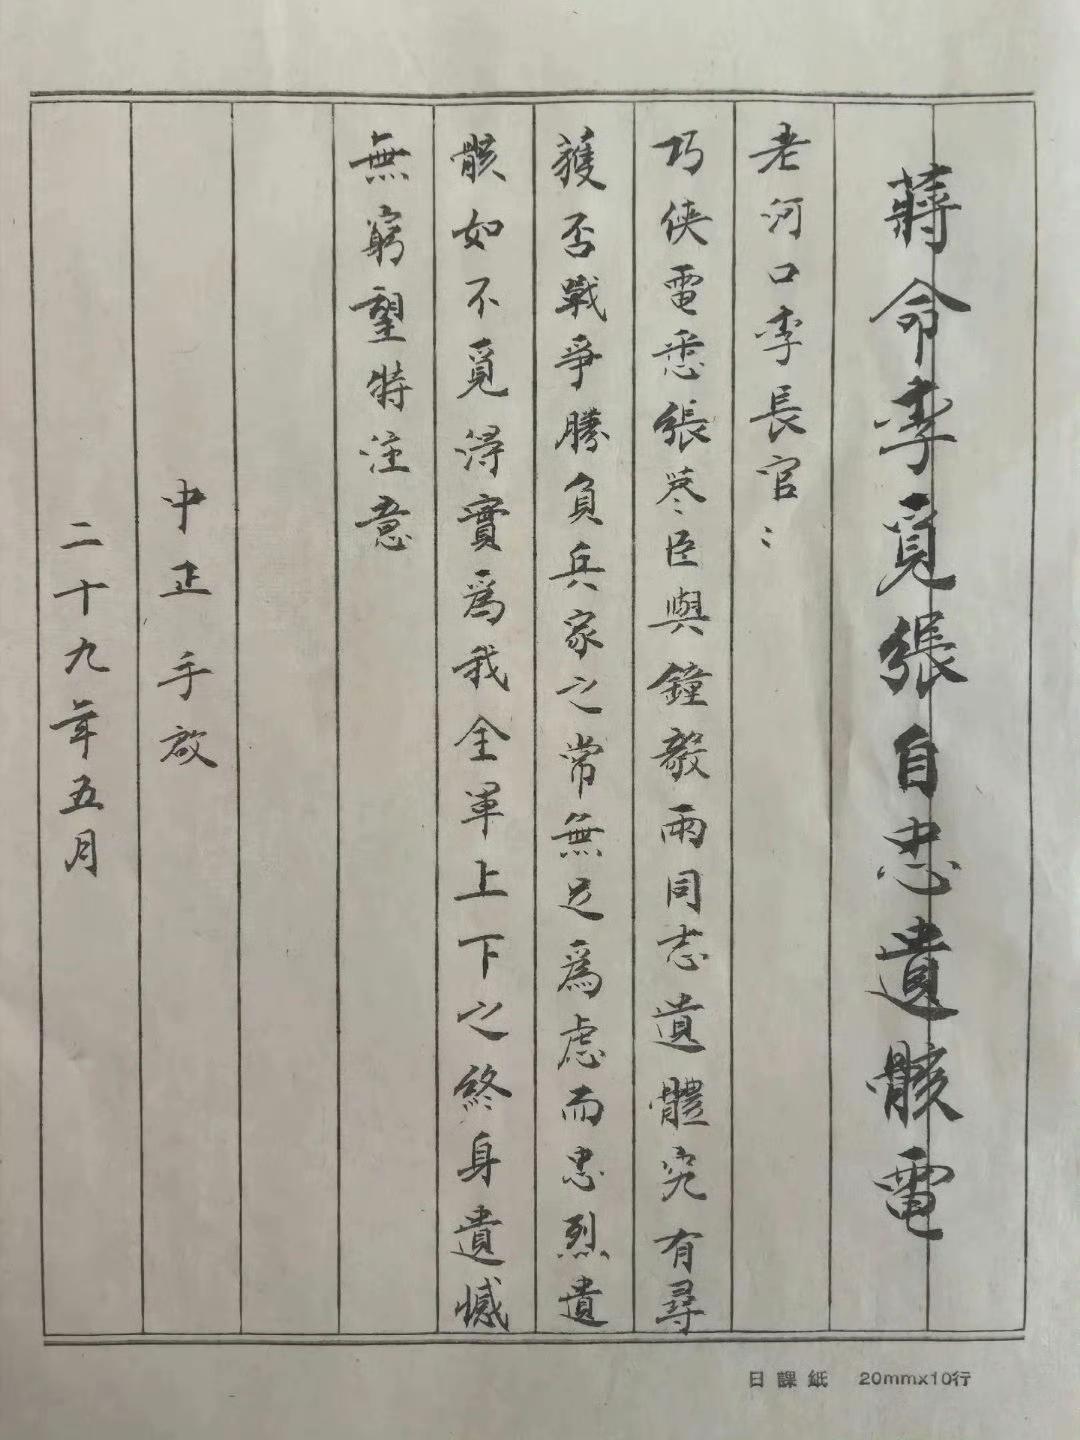 蔣命李覓張自忠遺骸電
老河口李長官：
巧俠電悉張藎臣與鐘毅兩同志遺體究有尋
獲否戰爭勝負兵家之常無足爲慮而忠烈遺
骸如不覓得實爲我全軍上下之終身遺憾
無窮望特注意
中正手啟
二十九年五月
日課紙 20mmx10行